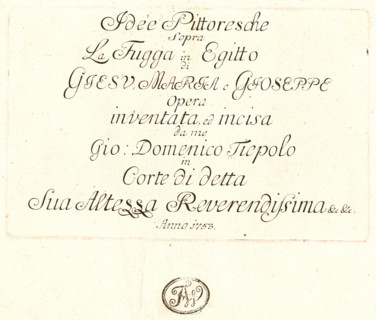 Idée Pittoresche
Sopra
La Fugga in Egitto
di
GIESV, MARIA e GIOSEPPE
Opera
inventata, ed incisa
da me
Gio: Domenico Tiepolo
in
Corte di detta
Sua Altessa Reverendissima &c &c.
Anno 1753.